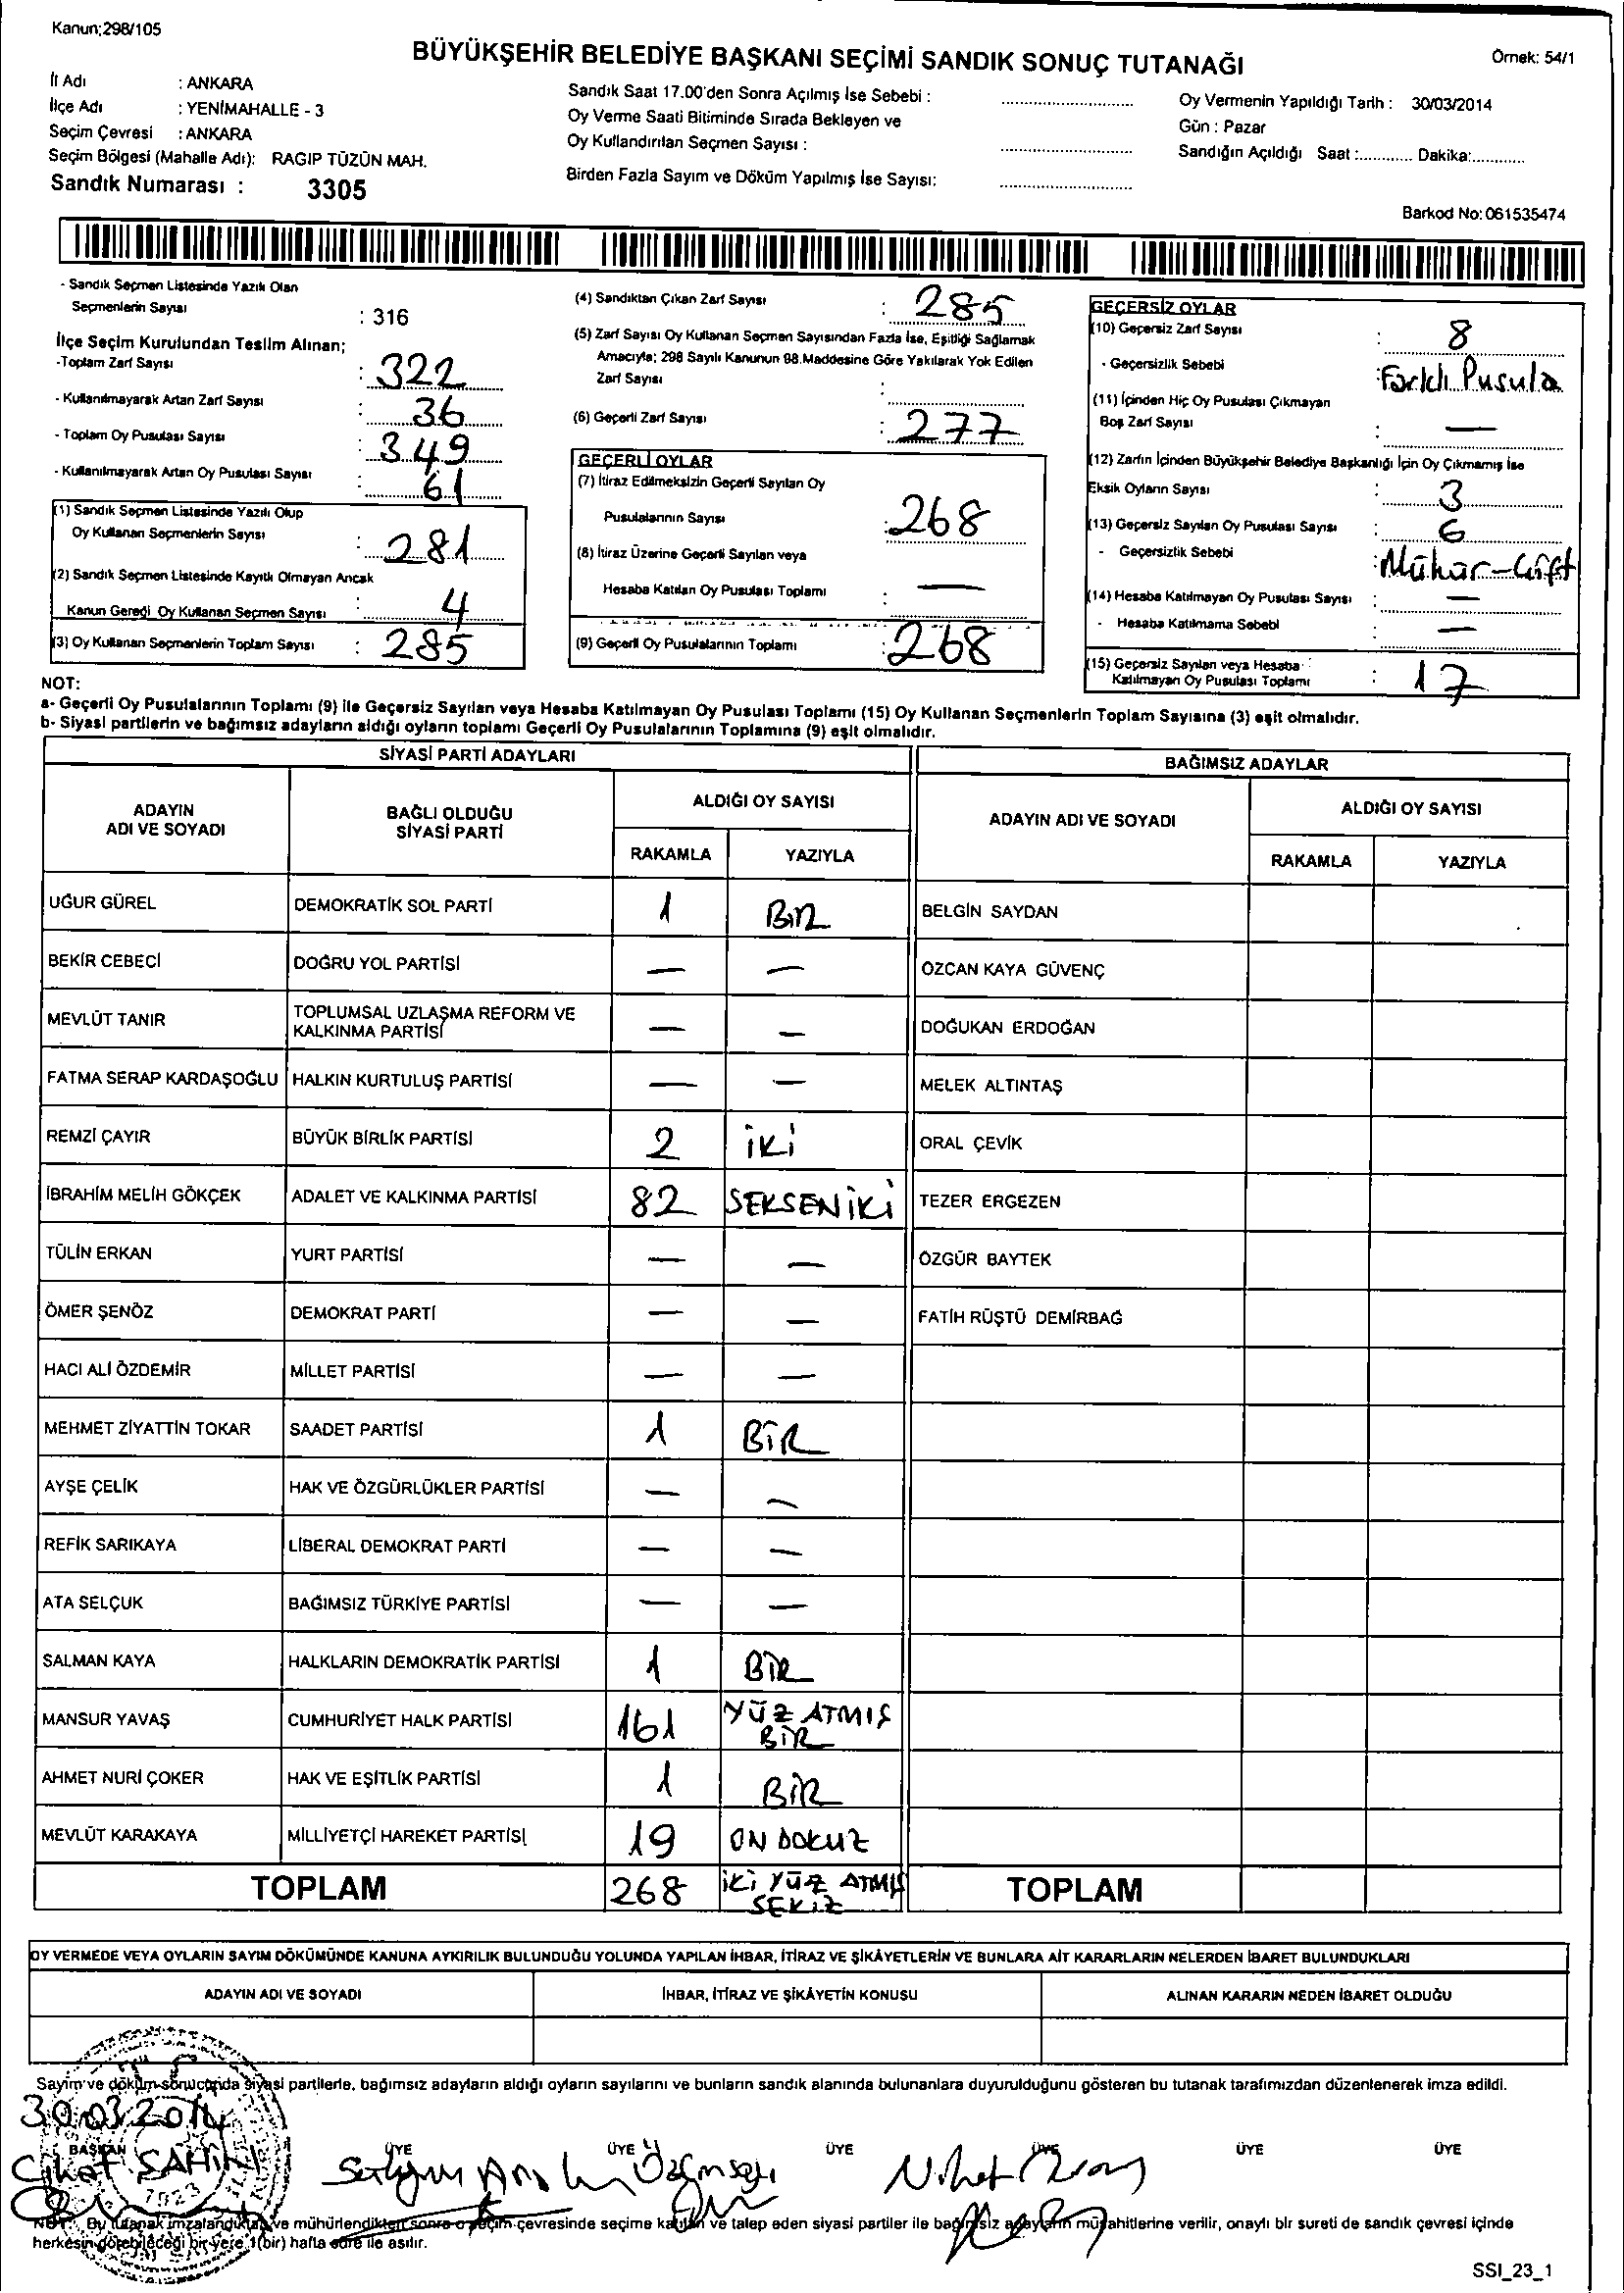 Kanun;298/105
BÜYÜKŞEHİR BELEDİYE BAŞKANI SEÇİMİ SANDIK SONUÇ TUTANAĞI
Örnek: 54/1
İl Adı : ANKARA
İlçe Adı : YENİMAHALLE - 3
Seçim Çevresi : ANKARA
Seçim Bölgesi (Mahalle Adı): RAGIP TÜZÜN MAH.
Sandık Numarası : 3305
Sandık Saat 17.00'den Sonra Açılmış İse Sebebi :
Oy Verme Saati Bitiminde Sırada Bekleyen ve
Oy Kullandırılan Seçmen Sayısı :
Birden Fazla Sayım ve Döküm Yapılmış İse Sayısı:
Oy Vermenin Yapıldığı Tarih : 30/03/2014
Gün : Pazar
Sandığın Açıldığı Saat :............ Dakika:............
Barkod No: 061535474
- Sandık Seçmen Listesinde Yazılı Olan
Seçmenlerin Sayısı : 316
İlçe Seçim Kurulundan Teslim Alınan;
-Toplam Zarf Sayısı : 322
- Kullanılmayarak Artan Zarf Sayısı : 36
- Toplam Oy Pusulası Sayısı : 349
- Kullanılmayarak Artan Oy Pusulası Sayısı : 61
(1) Sandık Seçmen Listesinde Yazılı Olup
Oy Kullanan Seçmenlerin Sayısı : 281
(2) Sandık Seçmen Listesinde Kayıtlı Olmayan Ancak
Kanun Gereği Oy Kullanan Seçmen Sayısı : 4
(3) Oy Kullanan Seçmenlerin Toplam Sayısı : 285
(4) Sandıktan Çıkan Zarf Sayısı : 285
(5) Zarf Sayısı Oy Kullanan Seçmen Sayısından Fazla İse, Eşitliği Sağlamak
Amacıyla; 298 Sayılı Kanunun 98.Maddesine Göre Yakılarak Yok Edilen
Zarf Sayısı :
(6) Geçerli Zarf Sayısı : 277
GEÇERLİ OYLAR
(7) İtiraz Edilmeksizin Geçerli Sayılan Oy
Pusulalarının Sayısı : 268
(8) İtiraz Üzerine Geçerli Sayılan veya
Hesaba Katılan Oy Pusulası Toplamı : —
(9) Geçerli Oy Pusulalarının Toplamı : 268
GEÇERSİZ OYLAR
(10) Geçersiz Zarf Sayısı : 8
- Geçersizlik Sebebi : Farklı Pusula
(11) İçinden Hiç Oy Pusulası Çıkmayan
Boş Zarf Sayısı : —
(12) Zarfın İçinden Büyükşehir Belediye Başkanlığı İçin Oy Çıkmamış İse
Eksik Oyların Sayısı : 3
(13) Geçersiz Sayılan Oy Pusulası Sayısı : 6
- Geçersizlik Sebebi : Mühür-Çift
(14) Hesaba Katılmayan Oy Pusulası Sayısı : —
- Hesaba Katılmama Sebebi : —
(15) Geçersiz Sayılan veya Hesaba
Katılmayan Oy Pusulası Toplamı : 17
NOT:
a- Geçerli Oy Pusulalarının Toplamı (9) ile Geçersiz Sayılan veya Hesaba Katılmayan Oy Pusulası Toplamı (15) Oy Kullanan Seçmenlerin Toplam Sayısına (3) eşit olmalıdır.
b- Siyasi partilerin ve bağımsız adayların aldığı oyların toplamı Geçerli Oy Pusulalarının Toplamına (9) eşit olmalıdır.
SİYASİ PARTİ ADAYLARI BAĞIMSIZ ADAYLAR
ADAYIN
ADI VE SOYADI
BAĞLI OLDUĞU
SİYASİ PARTİ
ALDIĞI OY SAYISI
RAKAMLA YAZIYLA
ADAYIN ADI VE SOYADI
ALDIĞI OY SAYISI
RAKAMLA YAZIYLA
UĞUR GÜREL DEMOKRATİK SOL PARTİ 1 BİR BELGİN SAYDAN
BEKİR CEBECİ DOĞRU YOL PARTİSİ — — ÖZCAN KAYA GÜVENÇ
MEVLÜT TANIR TOPLUMSAL UZLAŞMA REFORM VE
KALKINMA PARTİSİ — — DOĞUKAN ERDOĞAN
FATMA SERAP KARDAŞOĞLU HALKIN KURTULUŞ PARTİSİ — — MELEK ALTINTAŞ
REMZİ ÇAYIR BÜYÜK BİRLİK PARTİSİ 2 İKİ ORAL ÇEVİK
İBRAHİM MELİH GÖKÇEK ADALET VE KALKINMA PARTİSİ 82 SEKSENİKİ TEZER ERGEZEN
TÜLİN ERKAN YURT PARTİSİ — — ÖZGÜR BAYTEK
ÖMER ŞENÖZ DEMOKRAT PARTİ — — FATİH RÜŞTÜ DEMİRBAĞ
HACI ALİ ÖZDEMİR MİLLET PARTİSİ — —
MEHMET ZİYATTİN TOKAR SAADET PARTİSİ 1 BİR
AYŞE ÇELİK HAK VE ÖZGÜRLÜKLER PARTİSİ — —
REFİK SARIKAYA LİBERAL DEMOKRAT PARTİ — —
ATA SELÇUK BAĞIMSIZ TÜRKİYE PARTİSİ — —
SALMAN KAYA HALKLARIN DEMOKRATİK PARTİSİ 1 BİR
MANSUR YAVAŞ CUMHURİYET HALK PARTİSİ 161 YÜZ ATMIŞ
BİR
AHMET NURİ ÇOKER HAK VE EŞİTLİK PARTİSİ 1 BİR
MEVLÜT KARAKAYA MİLLİYETÇİ HAREKET PARTİSİ 19 ON DOKUZ
TOPLAM 268 İKİ YÜZ ATMIŞ
SEKİZ
TOPLAM
OY VERMEDE VEYA OYLARIN SAYIM DÖKÜMÜNDE KANUNA AYKIRILIK BULUNDUĞU YOLUNDA YAPILAN İHBAR, İTİRAZ VE ŞİKÂYETLERİN VE BUNLARA AİT KARARLARIN NELERDEN İBARET BULUNDUKLARI
ADAYIN ADI VE SOYADI İHBAR, İTİRAZ VE ŞİKÂYETİN KONUSU ALINAN KARARIN NEDEN İBARET OLDUĞU
Sayım ve döküm sonucunda siyasi partilerle, bağımsız adayların aldığı oyların sayılarını ve bunların sandık alanında bulunanlara duyurulduğunu gösteren bu tutanak tarafımızdan düzenlenerek imza edildi.
30.03.2014
BAŞKAN ÜYE ÜYE ÜYE ÜYE ÜYE ÜYE
ŞAHİN
NOT: Bu tutanak imzalandıktan ve mühürlendikten sonra o seçim çevresinde seçime katılan ve talep eden siyasi partiler ile bağımsız adayların müşahitlerine verilir, onaylı bir sureti de sandık çevresi içinde
herkesin görebileceği bir yere 1(bir) hafta süre ile asılır.
SSI_23_1